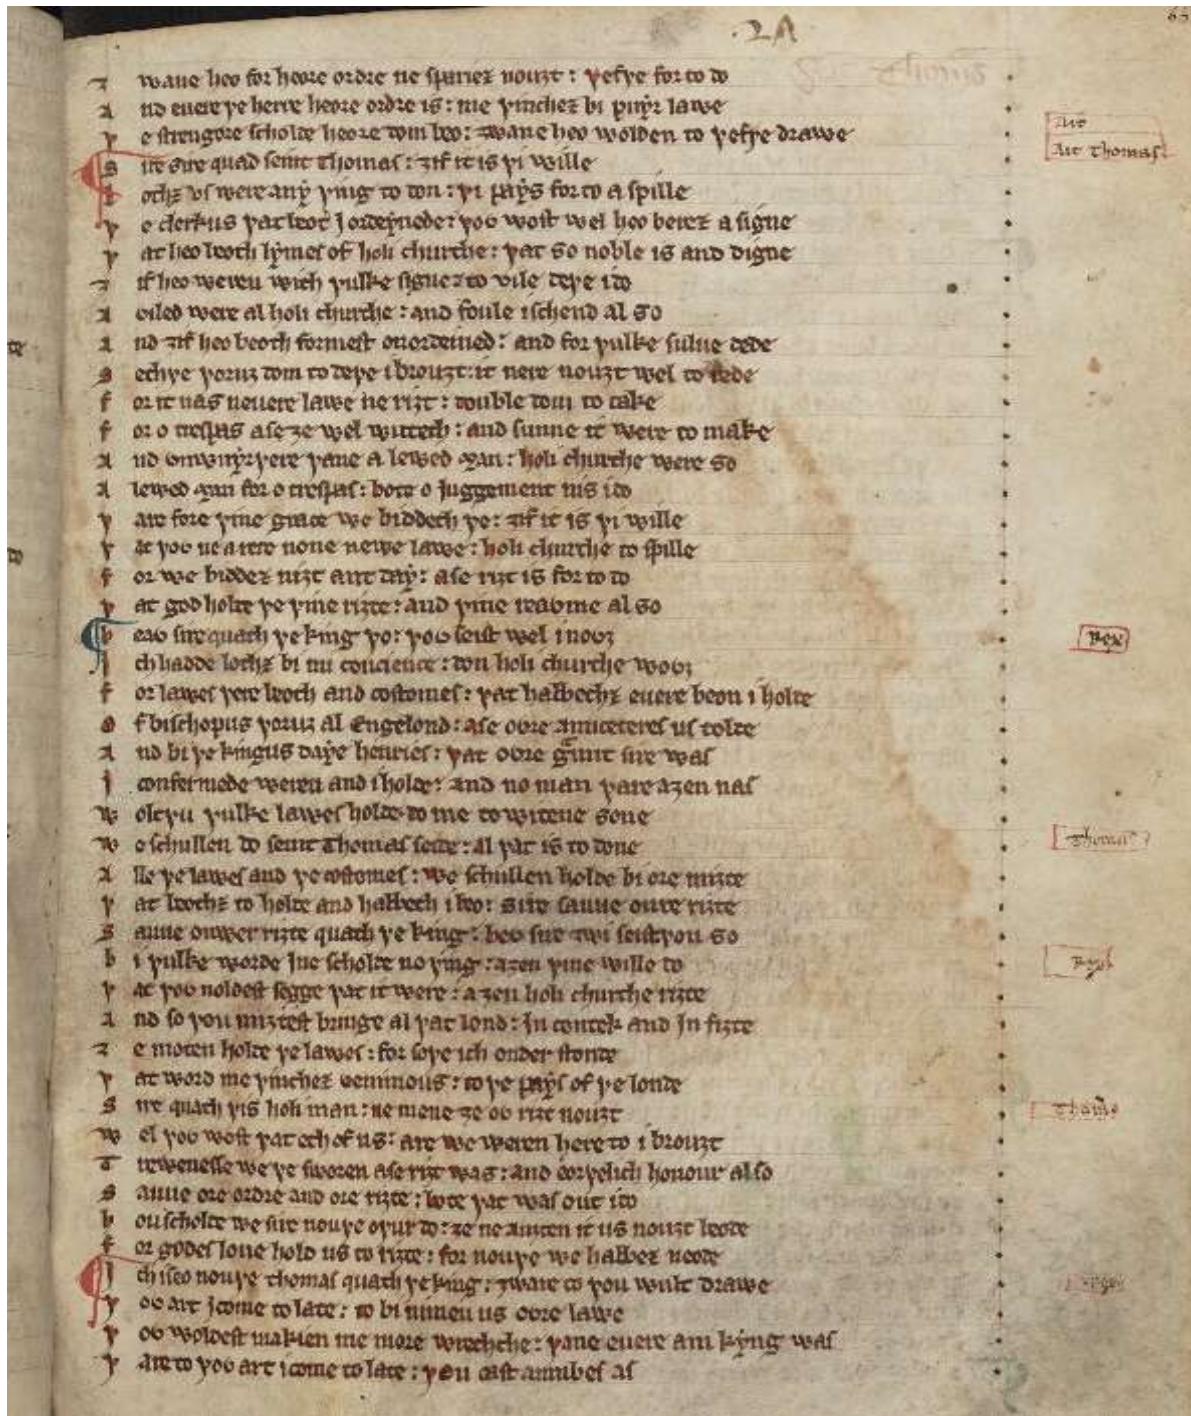 .2A
65
ʒ wane heo for heore ordre ne sparieʒ nouʒt : þefþe for to do
A nd euere þe herre heore ordre is : me þincheʒ bi puyr lawe
þ e strengore scholde heore dom beo : ʒwane heo wolden to þefþe drawe
S ire sire quad seint Thomas : ʒif it is þi wille
L othʒ us were any þing to don : þi pays for to a spille
þ e clerkus þat beoth Iordeynede : þou wost wel heo bereʒ a signe
þ at heo beoth lymes of holi churche : þat so noble is and digne
ʒ if heo weren with þulke signe : to vile deþe i do
A viled were al holi churche : and foule i schend al so
A nd ʒif heo beoth formest onordeined : and for þulke sulue dede
S ethþe þoruʒ dom to deþe i brouʒt : it nere nouʒt wel to rede
F or it nas neuere lawe ne riʒt : double dom to take
F or o trespas ase ʒe wel witteth : and sunne it were to make
A nd onwuyrþere þane a lewed man : holi churche were so
A lewed man for o trespas : bote o Juggement nis i do
þ are fore þine grace we biddeth þe : ʒif it is þi wille
þ at þou ne arere none newe lawe : holi churche to spille
F or we biddeʒ niʒt ant day : ase riʒt is for to do
þ at god holde þe þine riʒte : and þine reaume al so
b eau sire quath þe king þo : þou seist wel i nouʒ
I ch hadde lothʒ bi mi concience : don holi churche wouʒ
F or lawes þere beoth and costomes : þat habbethʒ euere beon i holde
O f bischopus þoruʒ al Engelond : ase oure aunceteres us tolde
A nd bi þe kingus daye henries : þat oure graunt sire was
I confermede weren and i holde : and no man þare aʒen nas
W oltþu þulke lawes holde : do me to witene sone
W e schullen do seint Thomas seide : al þat is to done
A lle þe lawes and þe costomes : we schullen holde bi ore miʒte
þ at beothʒ to holde and habbeth i beo : sire sauue oure riʒte
S auue ouwer riʒte quath þe king : beo sire ʒwi seist þou so
b i þulke worde Ine scholde no þing : aʒen þine wille do
þ at þou noldest segge þat it were : aʒen holi churche riʒte
A nd so þou miʒtest bringe al þat lond : In contek and In fiʒte
ʒ e moten holde þe lawes : for soþe ich onder stonde
þ at word me þincheʒ veninious : to þe pays of þe londe
S ire quath þis holi man : ne mene ʒe ou riʒt nouʒt
W el þou wost þat ech of us : are we weren here to i brouʒt
T rewenesse we þe sworen ase riʒt was : and eorþelich honour al so
S auue ore ordre and ore riʒte : bote þat was out i do
h ou scholde we sire nouþe oþur do : ʒe ne auʒten it us nouʒt beode
F or godes loue hold us to riʒte : for nouþe we habbeʒ neode
I ch iseo nouþe Thomas quath þe king : ʒware to þou wult drawe
þ ou art Icome to late : to bi nimen us oure lawe
þ ou woldest makien me more wrechche : þane euere am kyng was
þ are to þou art icome to late : þou
Thomas
Rex
Thomas
Thomas